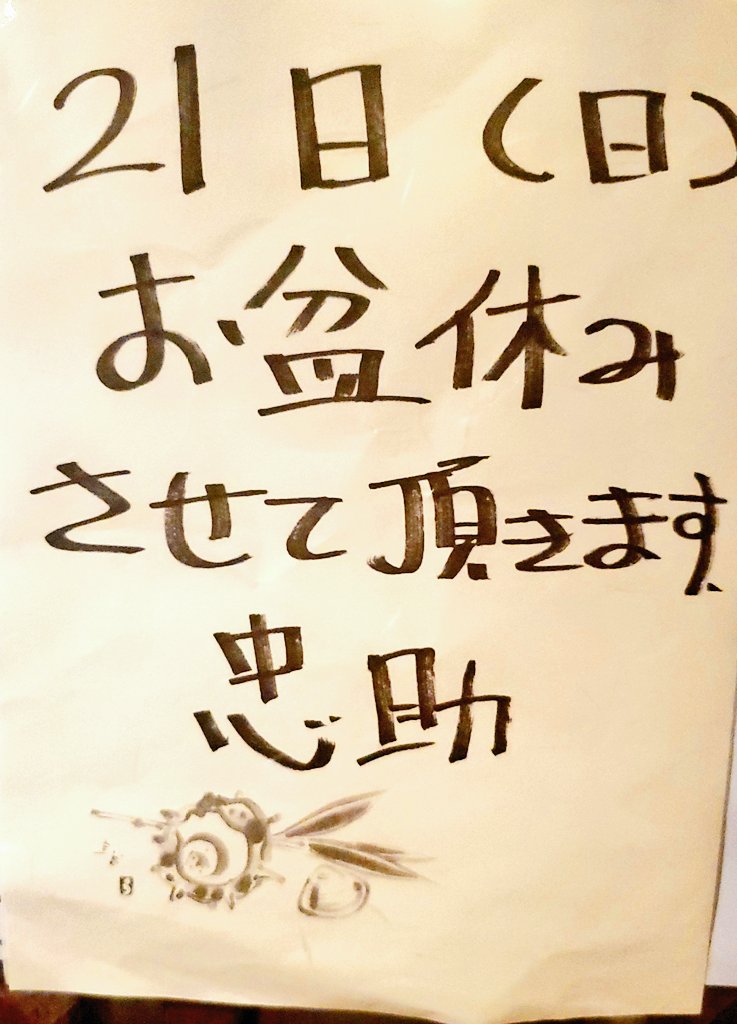 21日(日)
お盆休み
させて頂きます
忠助